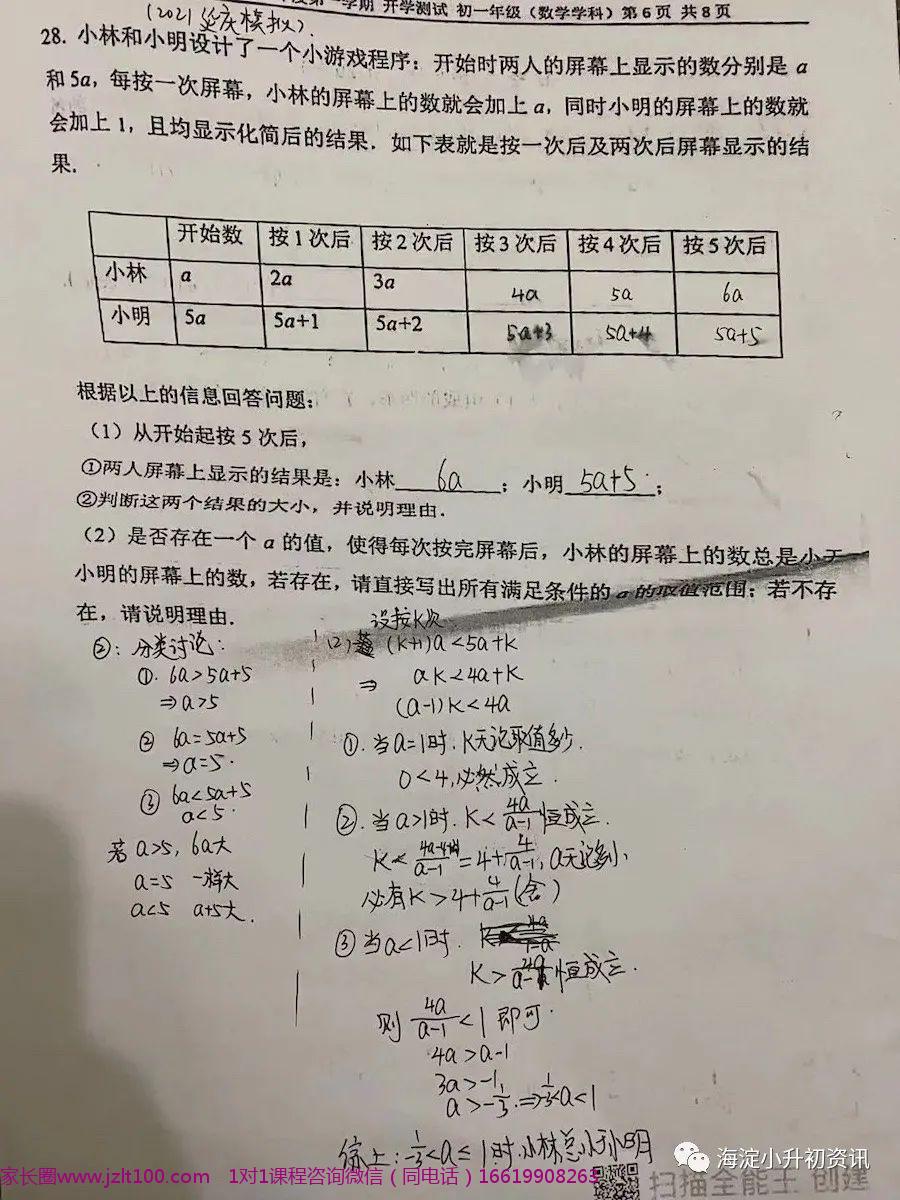 第一学期 开学测试 初一年级（数学学科）第6页 共8页
（2021延庆模拟）.
28. 小林和小明设计了一个小游戏程序：开始时两人的屏幕上显示的数分别是 a
和5a，每按一次屏幕，小林的屏幕上的数就会加上 a，同时小明的屏幕上的数就
会加上 1，且均显示化简后的结果．如下表就是按一次后及两次后屏幕显示的结
果．
开始数 按1次后 按2次后 按3次后 按4次后 按5次后
小林 a 2a 3a 4a 5a 6a
小明 5a 5a+1 5a+2 5a+3 5a+4 5a+5
根据以上的信息回答问题：
（1）从开始起按 5 次后，
①两人屏幕上显示的结果是：小林 6a ；小明 5a+5 ；
②判断这两个结果的大小，并说明理由．
（2）是否存在一个 a 的值，使得每次按完屏幕后，小林的屏幕上的数总是小于
小明的屏幕上的数，若存在，请直接写出所有满足条件的 a 的取值范围；若不存
在，请说明理由．
②：分类讨论：
①. 6a>5a+5
⇒a>5
② 6a=5a+5
⇒a=5.
③ 6a<5a+5
a<5.
若 a>5, 6a大
a=5 一样大
a<5 a+5大.
设按K次
(2) (K+1)a<5a+K
⇒ aK<4a+K
(a-1)K<4a
①. 当a=1时. K无论取值多少.
0<4, 必然成立.
②. 当a>1时. K<4a/(a-1) 恒成立.
=4+4/(a-1), a无论多小,
必有K>4+4/(a-1) (舍)
③ 当a<1时.
K> 恒成立.
则 4a/(a-1)<1 即可.
4a>a-1
3a>-1
a>-1/3. ⇒-1/3<a<1
综上: -1/3<a≤1时, 小林总小于小明
海淀小升初资讯
扫描全能王 创建
家长圈www.jzlt100.com 1对1课程咨询微信（同电话）16619908263